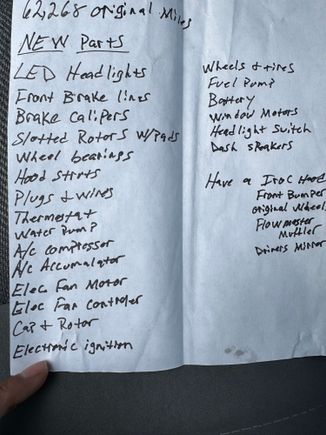 62,268 original Miles
NEW Parts
LED Headlights
Front Brake lines
Brake Calipers
Slotted Rotors w/Pads
Wheel bearings
Hood struts
Plugs & wires
Thermostat
Water Pump
A/c compressor
A/c Accumalator
Elec Fan Motor
Eloc Fan Controler
Cap & Rotor
Electronic ignition
Wheels & tires
Fuel Pump
Battery
Window Motors
Headlight Switch
Dash speakers
Have a Iroc Hood
Front Bumper
original Wheel
Flowmaster
Muffler
Drivers Mirror